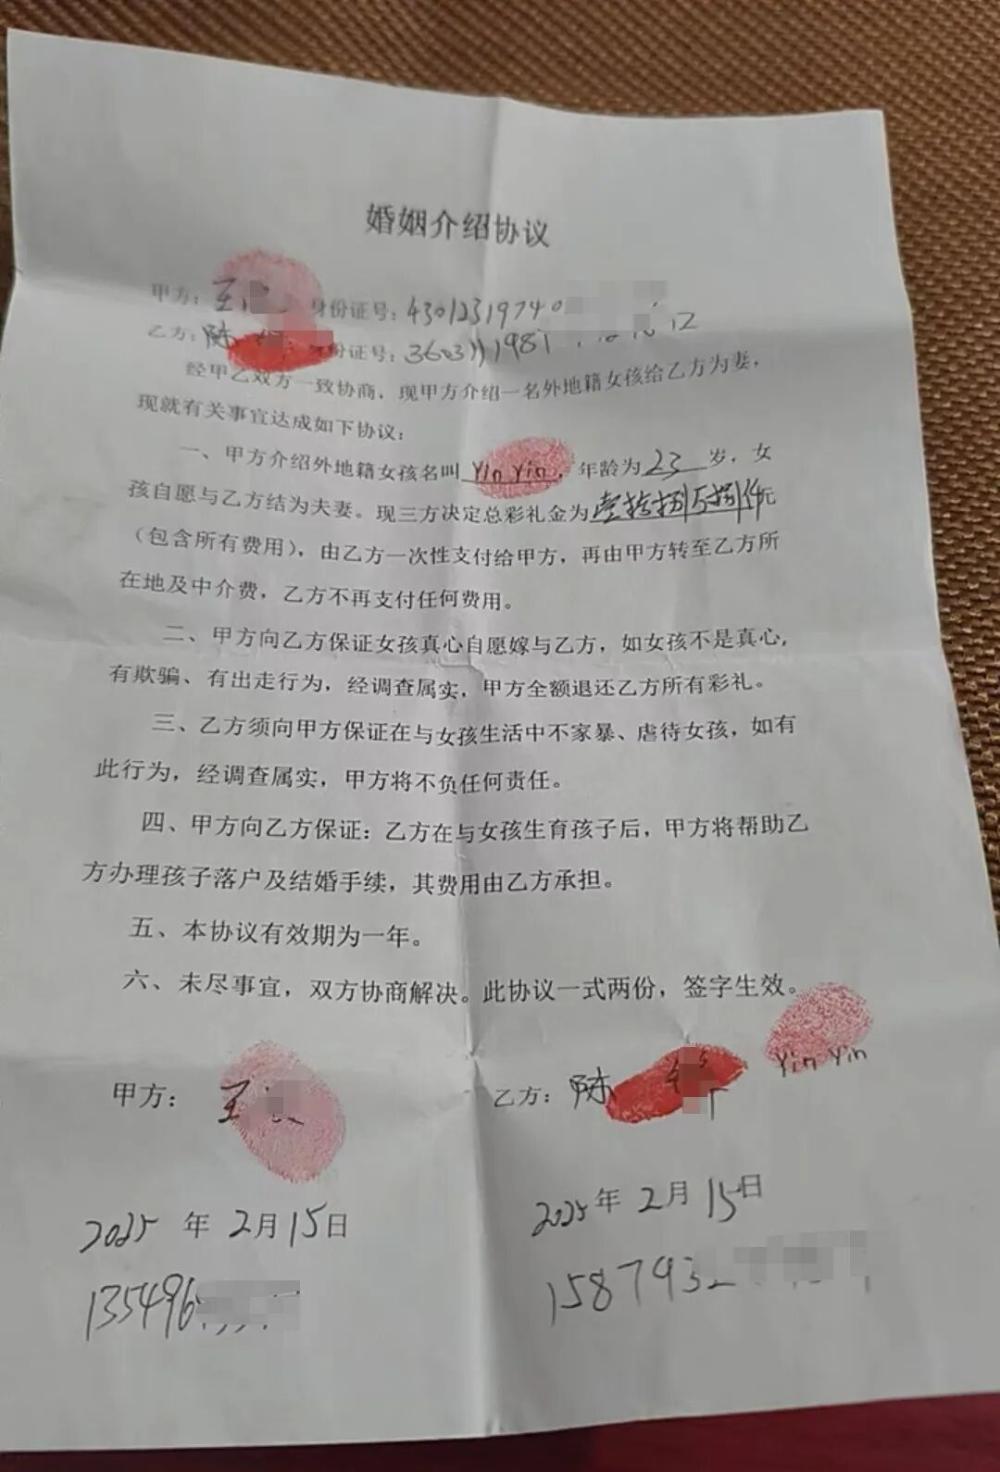 婚姻介绍协议
甲方：王 身份证号：43012319740
乙方：陈 身份证号：3603111981
经甲乙双方一致协商，现甲方介绍一名外地籍女孩给乙方为妻，
现就有关事宜达成如下协议：
一、甲方介绍外地籍女孩名叫 Yin Yin，年龄为 23 岁，女
孩自愿与乙方结为夫妻。现三方决定总彩礼金为壹拾捌万捌仟元
（包含所有费用），由乙方一次性支付给甲方，再由甲方转至乙方所
在地及中介费，乙方不再支付任何费用。
二、甲方向乙方保证女孩真心自愿嫁与乙方，如女孩不是真心，
有欺骗、有出走行为，经调查属实，甲方全额退还乙方所有彩礼。
三、乙方须向甲方保证在与女孩生活中不家暴、虐待女孩，如有
此行为，经调查属实，甲方将不负任何责任。
四、甲方向乙方保证：乙方在与女孩生育孩子后，甲方将帮助乙
方办理孩子落户及结婚手续，其费用由乙方承担。
五、本协议有效期为一年。
六、未尽事宜，双方协商解决。此协议一式两份，签字生效。
甲方：王 乙方：陈 Yin Yin
2025 年 2 月 15 日 2025 年 2 月 15 日
135496 1587932